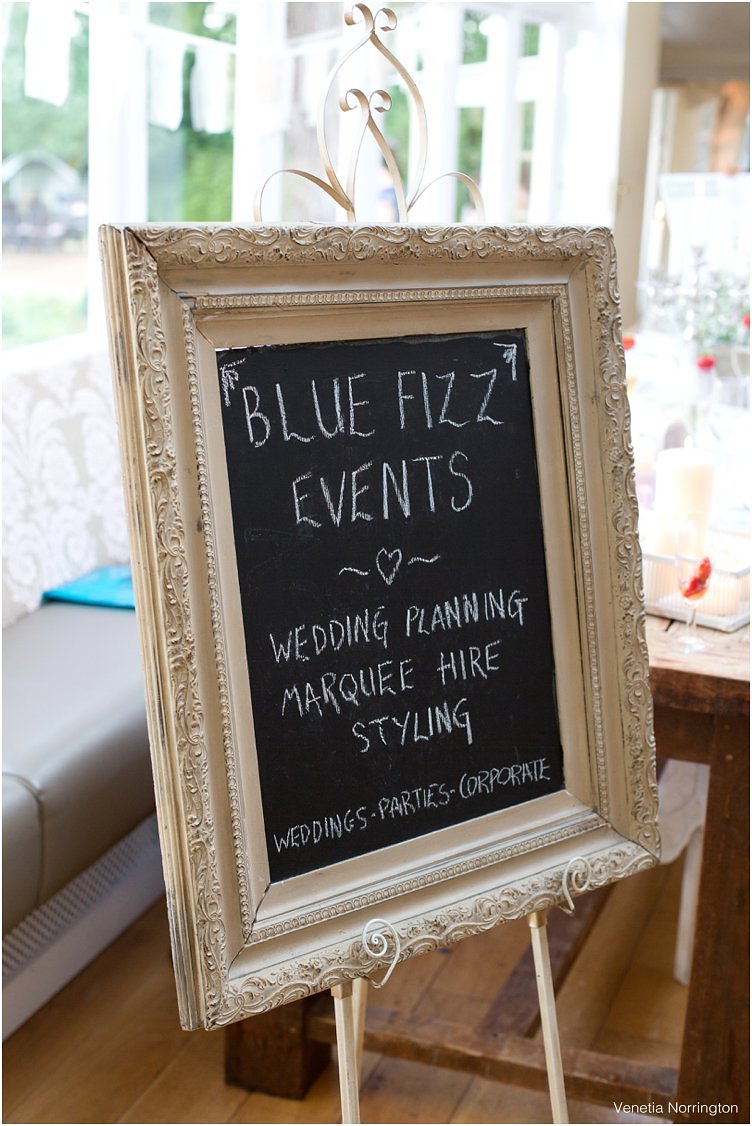 BLUE FIZZ
EVENTS
WEDDING PLANNING
MARQUEE HIRE
STYLING
WEDDINGS-PARTIES-CORPORATE
Venetia Norrington